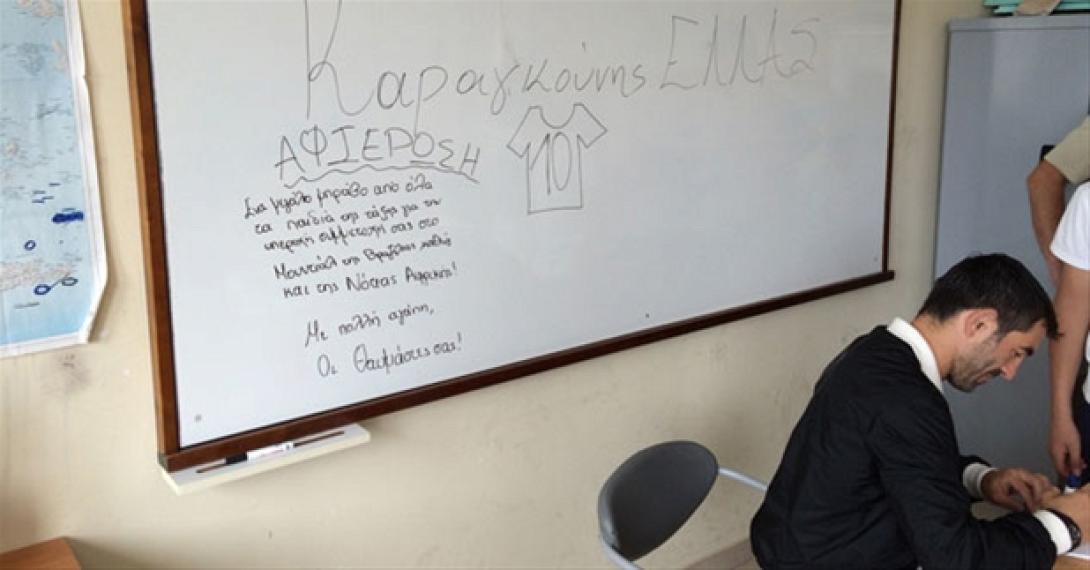 Καραγκούνης ΕΛΛΑΣ
ΑΦΙΕΡΩΣΗ
10
Ένα μεγάλο μπράβο από όλα
τα παιδιά της τάξης για την
υπεροχη συμμετοχή σας στο
Μουντιάλ της Βραζιλίας καθώς
και της Νότιας Αφρικής!
Με πολλή αγάπη,
Οι Θαυμάστες σας!